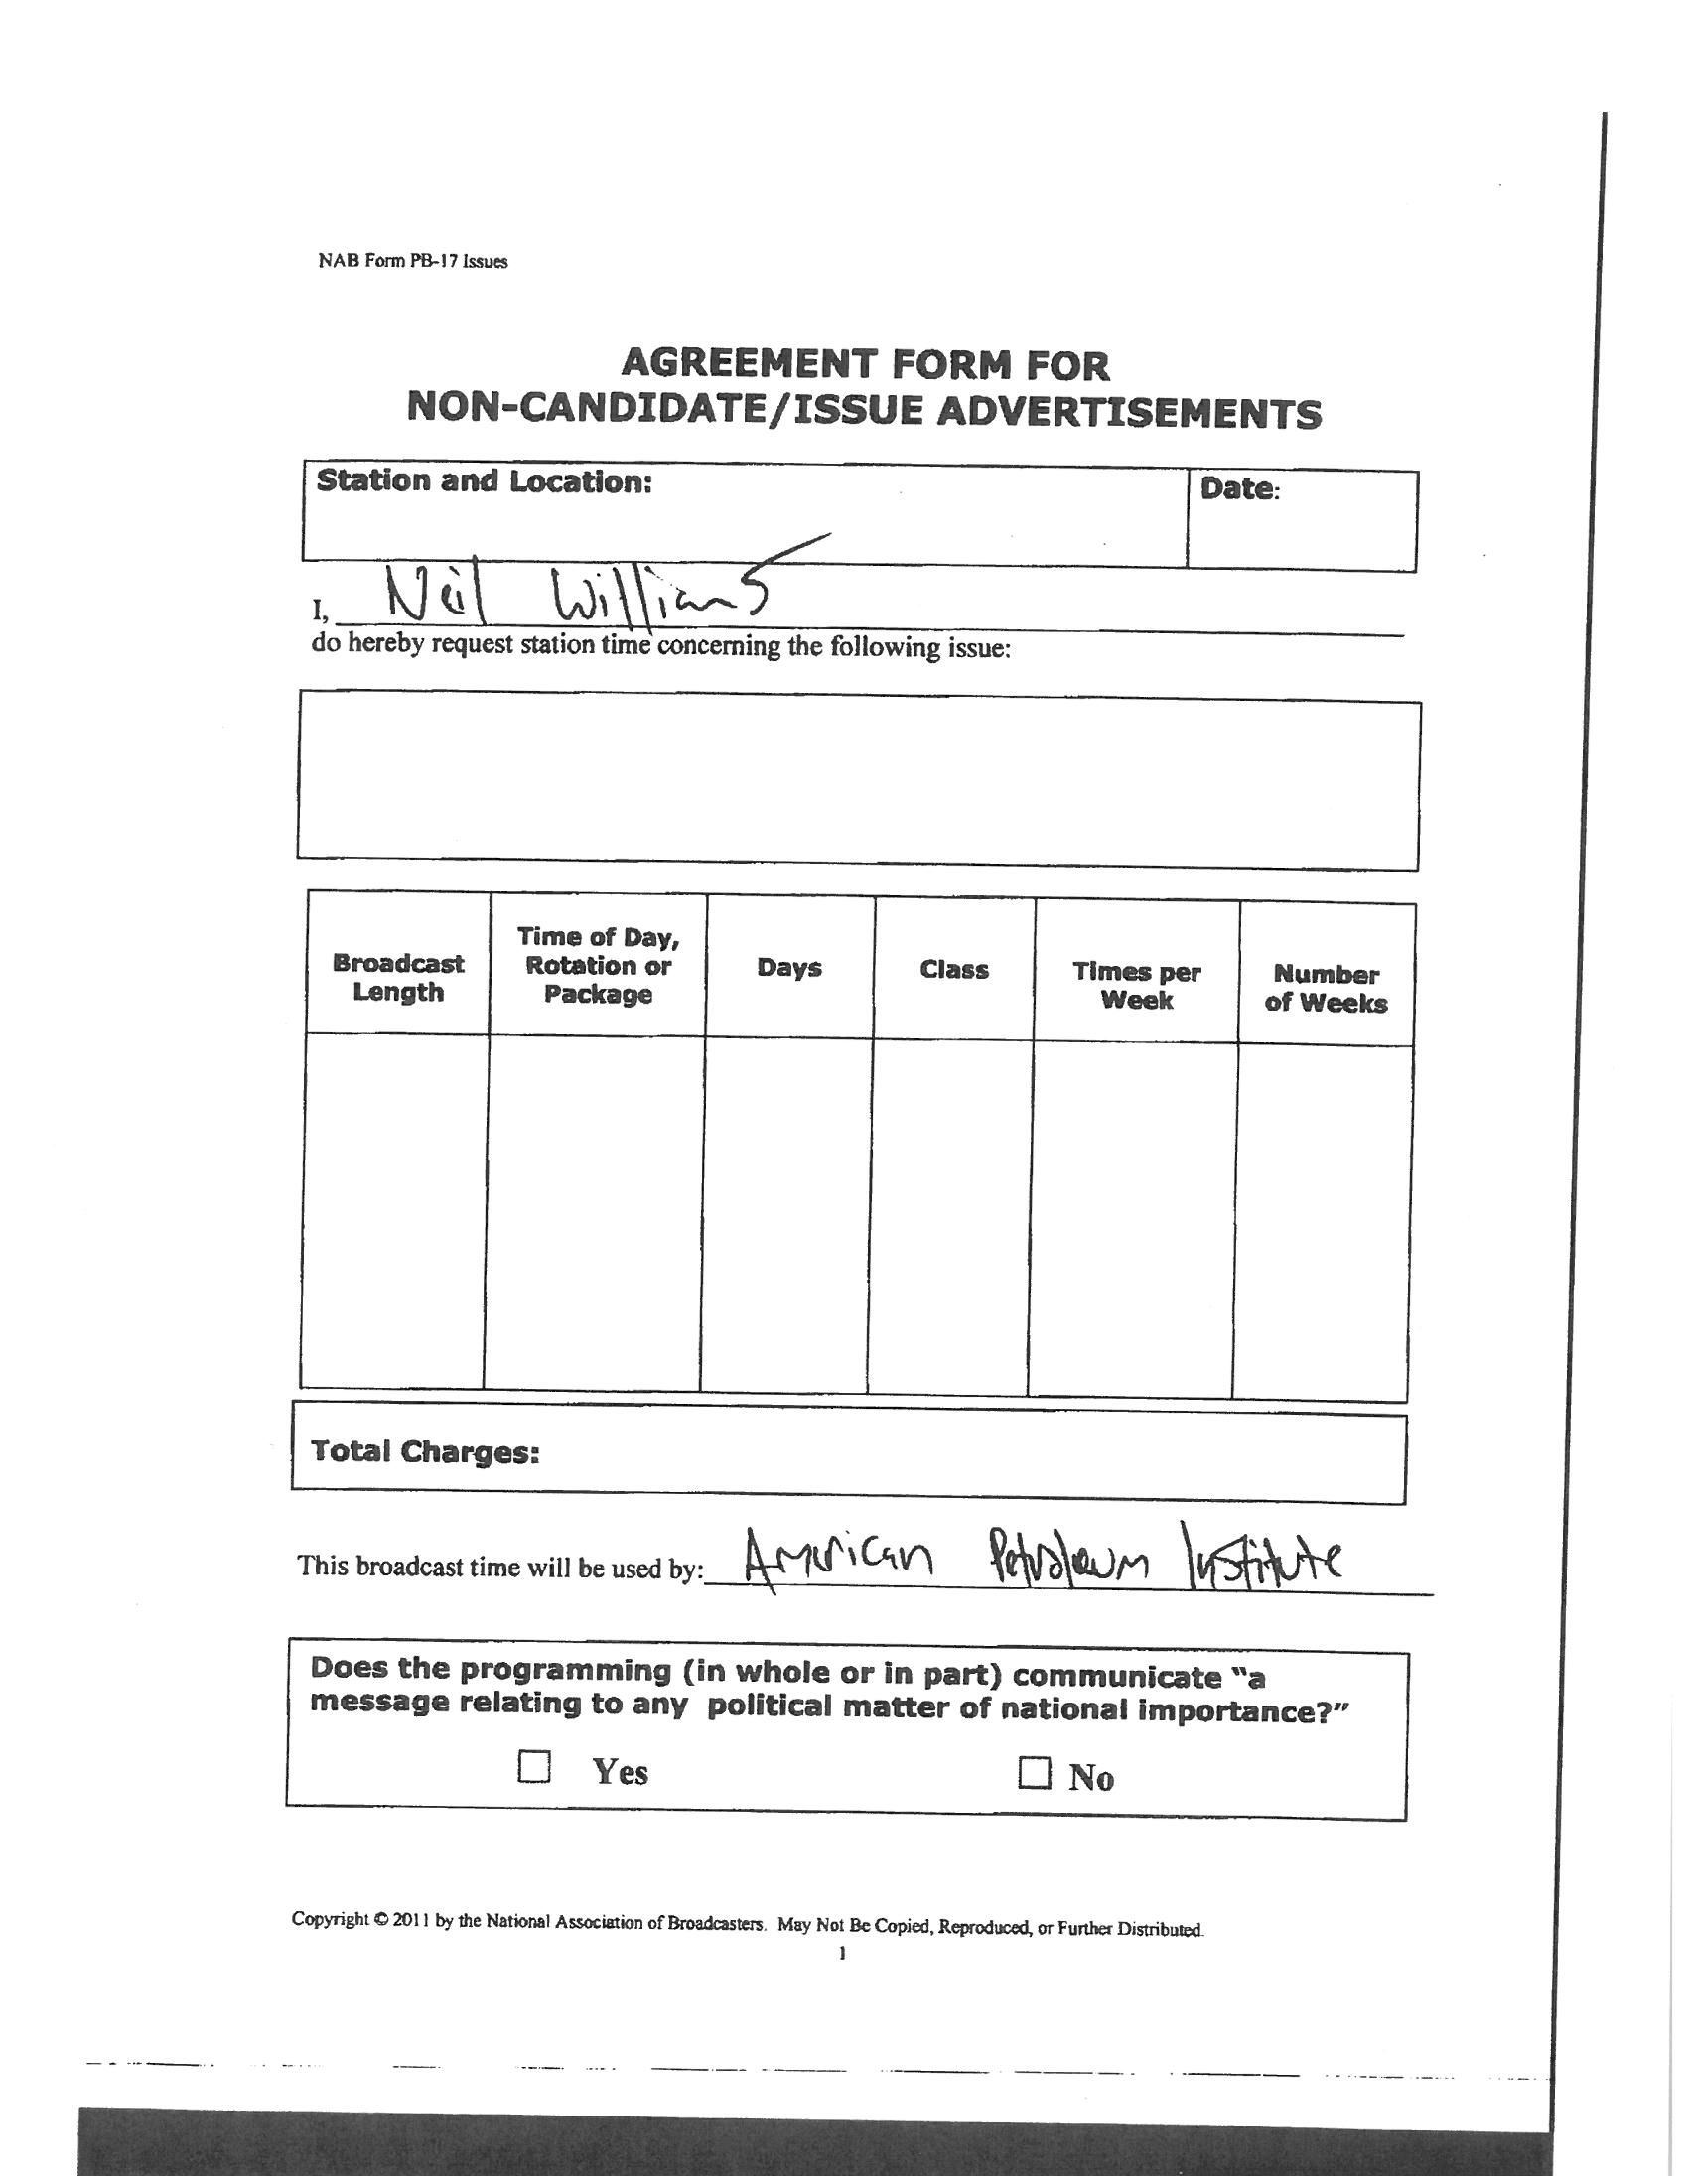 NAB Form PB-17 Issues
AGREEMENT FORM FOR
NON-CANDIDATE/ISSUE ADVERTISEMENTS
Station and Location:
Date:
I, Neil Williams
do hereby request station time concerning the following issue:
Broadcast Length
Time of Day, Rotation or Package
Days
Class
Times per Week
Number of Weeks
Total Charges:
This broadcast time will be used by: American Petroleum Institute
Does the programming (in whole or in part) communicate “a
message relating to any political matter of national importance?”
☐ Yes ☐ No
Copyright © 2011 by the National Association of Broadcasters. May Not Be Copied, Reproduced, or Further Distributed.
1